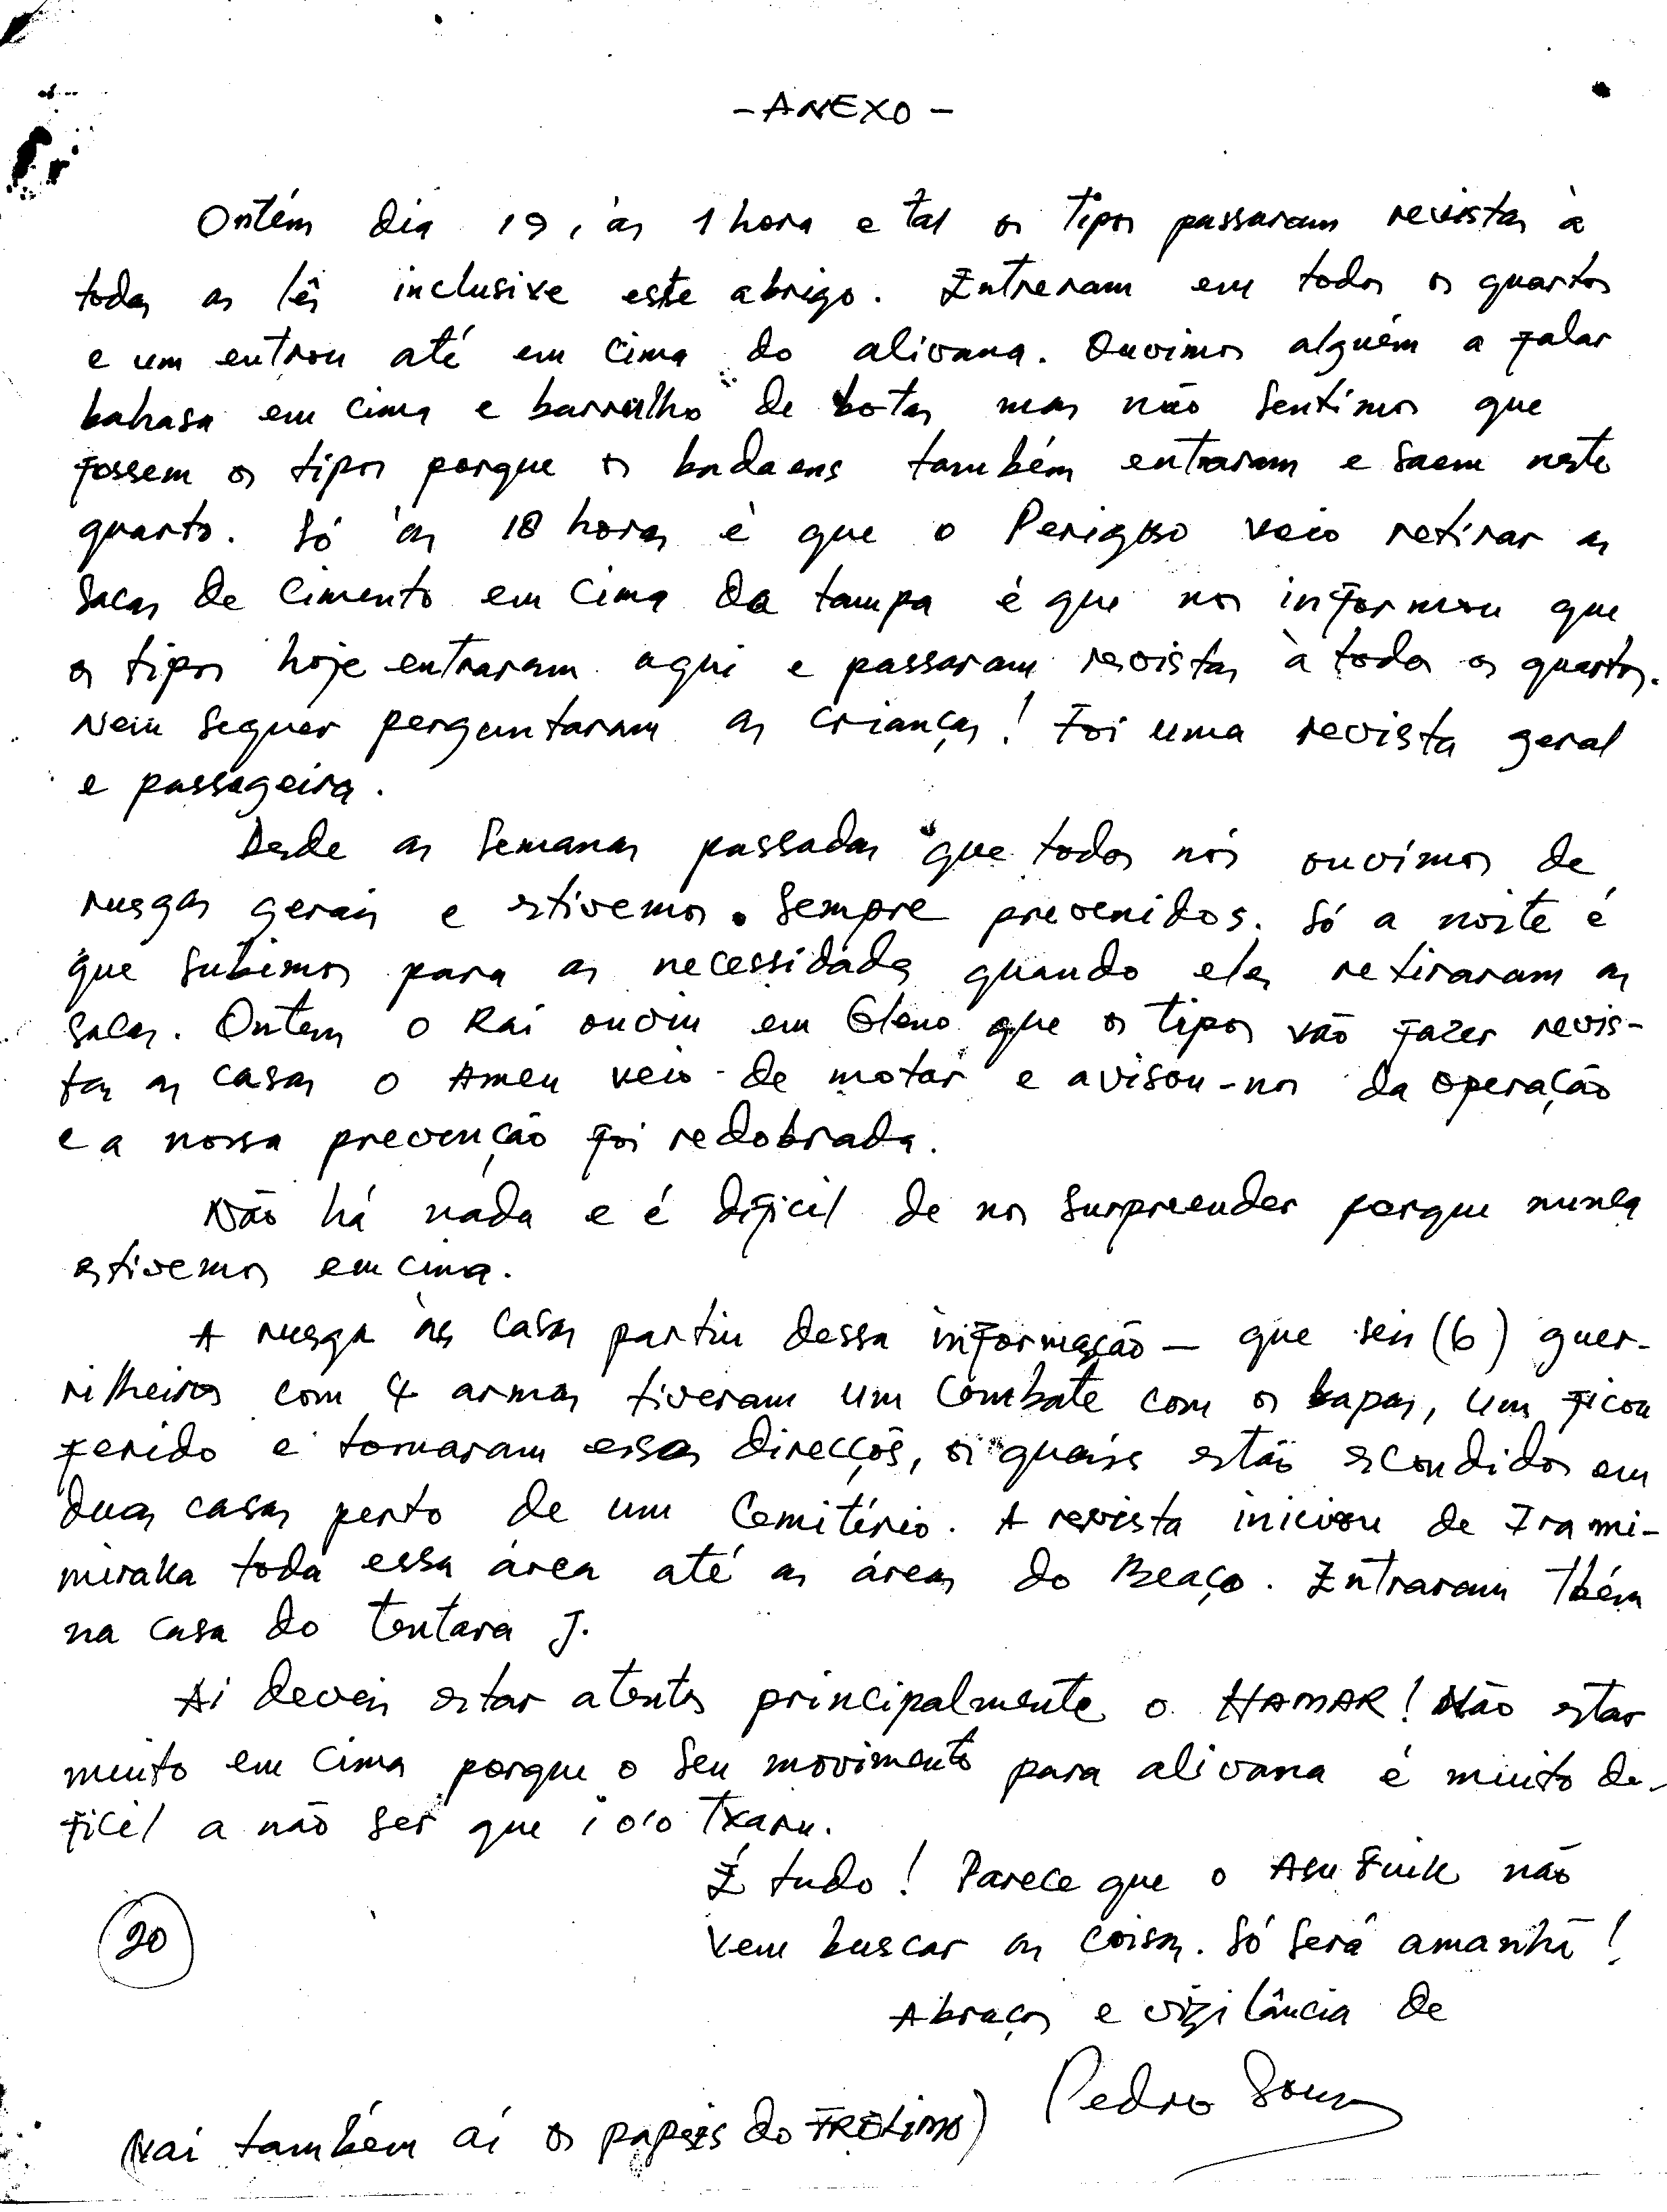 - ANEXO -
Ontém dia 19, às 1 hora e tal os tipos passaram revistas à
todas as lês inclusive este abrigo. Entreram em todos os quartos
e um entrou até em cima do alivana. Ouvimos alguém a falar
bahasa em cima e barrulho de botas mas não sentimos que
fossem os tipos porque os badaens também entraram e saem neste
quarto. Só às 18 horas é que o Perigoso veio retirar as
sacas de cimento em cima da tampa é que nos informou que
os tipos hoje entraram aqui e passaram revistas à todos os quartos.
Nem sequer perguntaram as crianças! Foi uma revista geral
e passageira.
Desde as semanas passadas que todos nós ouvimos de
rusgas gerais e estivemos sempre prevenidos. Só a noite é
que subimos para as necessidades quando eles retiraram as
sacas. Ontem o Rai ouviu em Gleno que os tipos vão fazer revis-
tas as casas o Ameu veio de motor e avisou-nos da operação
e a nossa prevenção foi redobrada.
Não há nada e é difícil de nos surpreender porque nunca
estivemos em cima.
A rusga às casas partiu dessa informação - que seis (6) guer-
rilheiros com 4 armas tiveram um combate com os bapas, um ficou
ferido e tomaram essas direcçõs, os quais estão escondidos em
duas casas perto de um Cemitério. A revista iniciou de Frami-
miraka toda essa área até as áreas do Beaço. Entraram tbém
na casa do tentara J.
Ai deveis estar atentos principalmente o HAMAR! Não estar
muito em cima porque o seu movimento para alivana é muito de-
ficil a não ser que io'o Txaru.
É tudo! Parece que o Asu Fuik não
vem buscar as coisas. Só será amanhã!
Abraços e vigilância de
Pedro Sousa
20
(Vai também aí os papéis do FRELIMO)